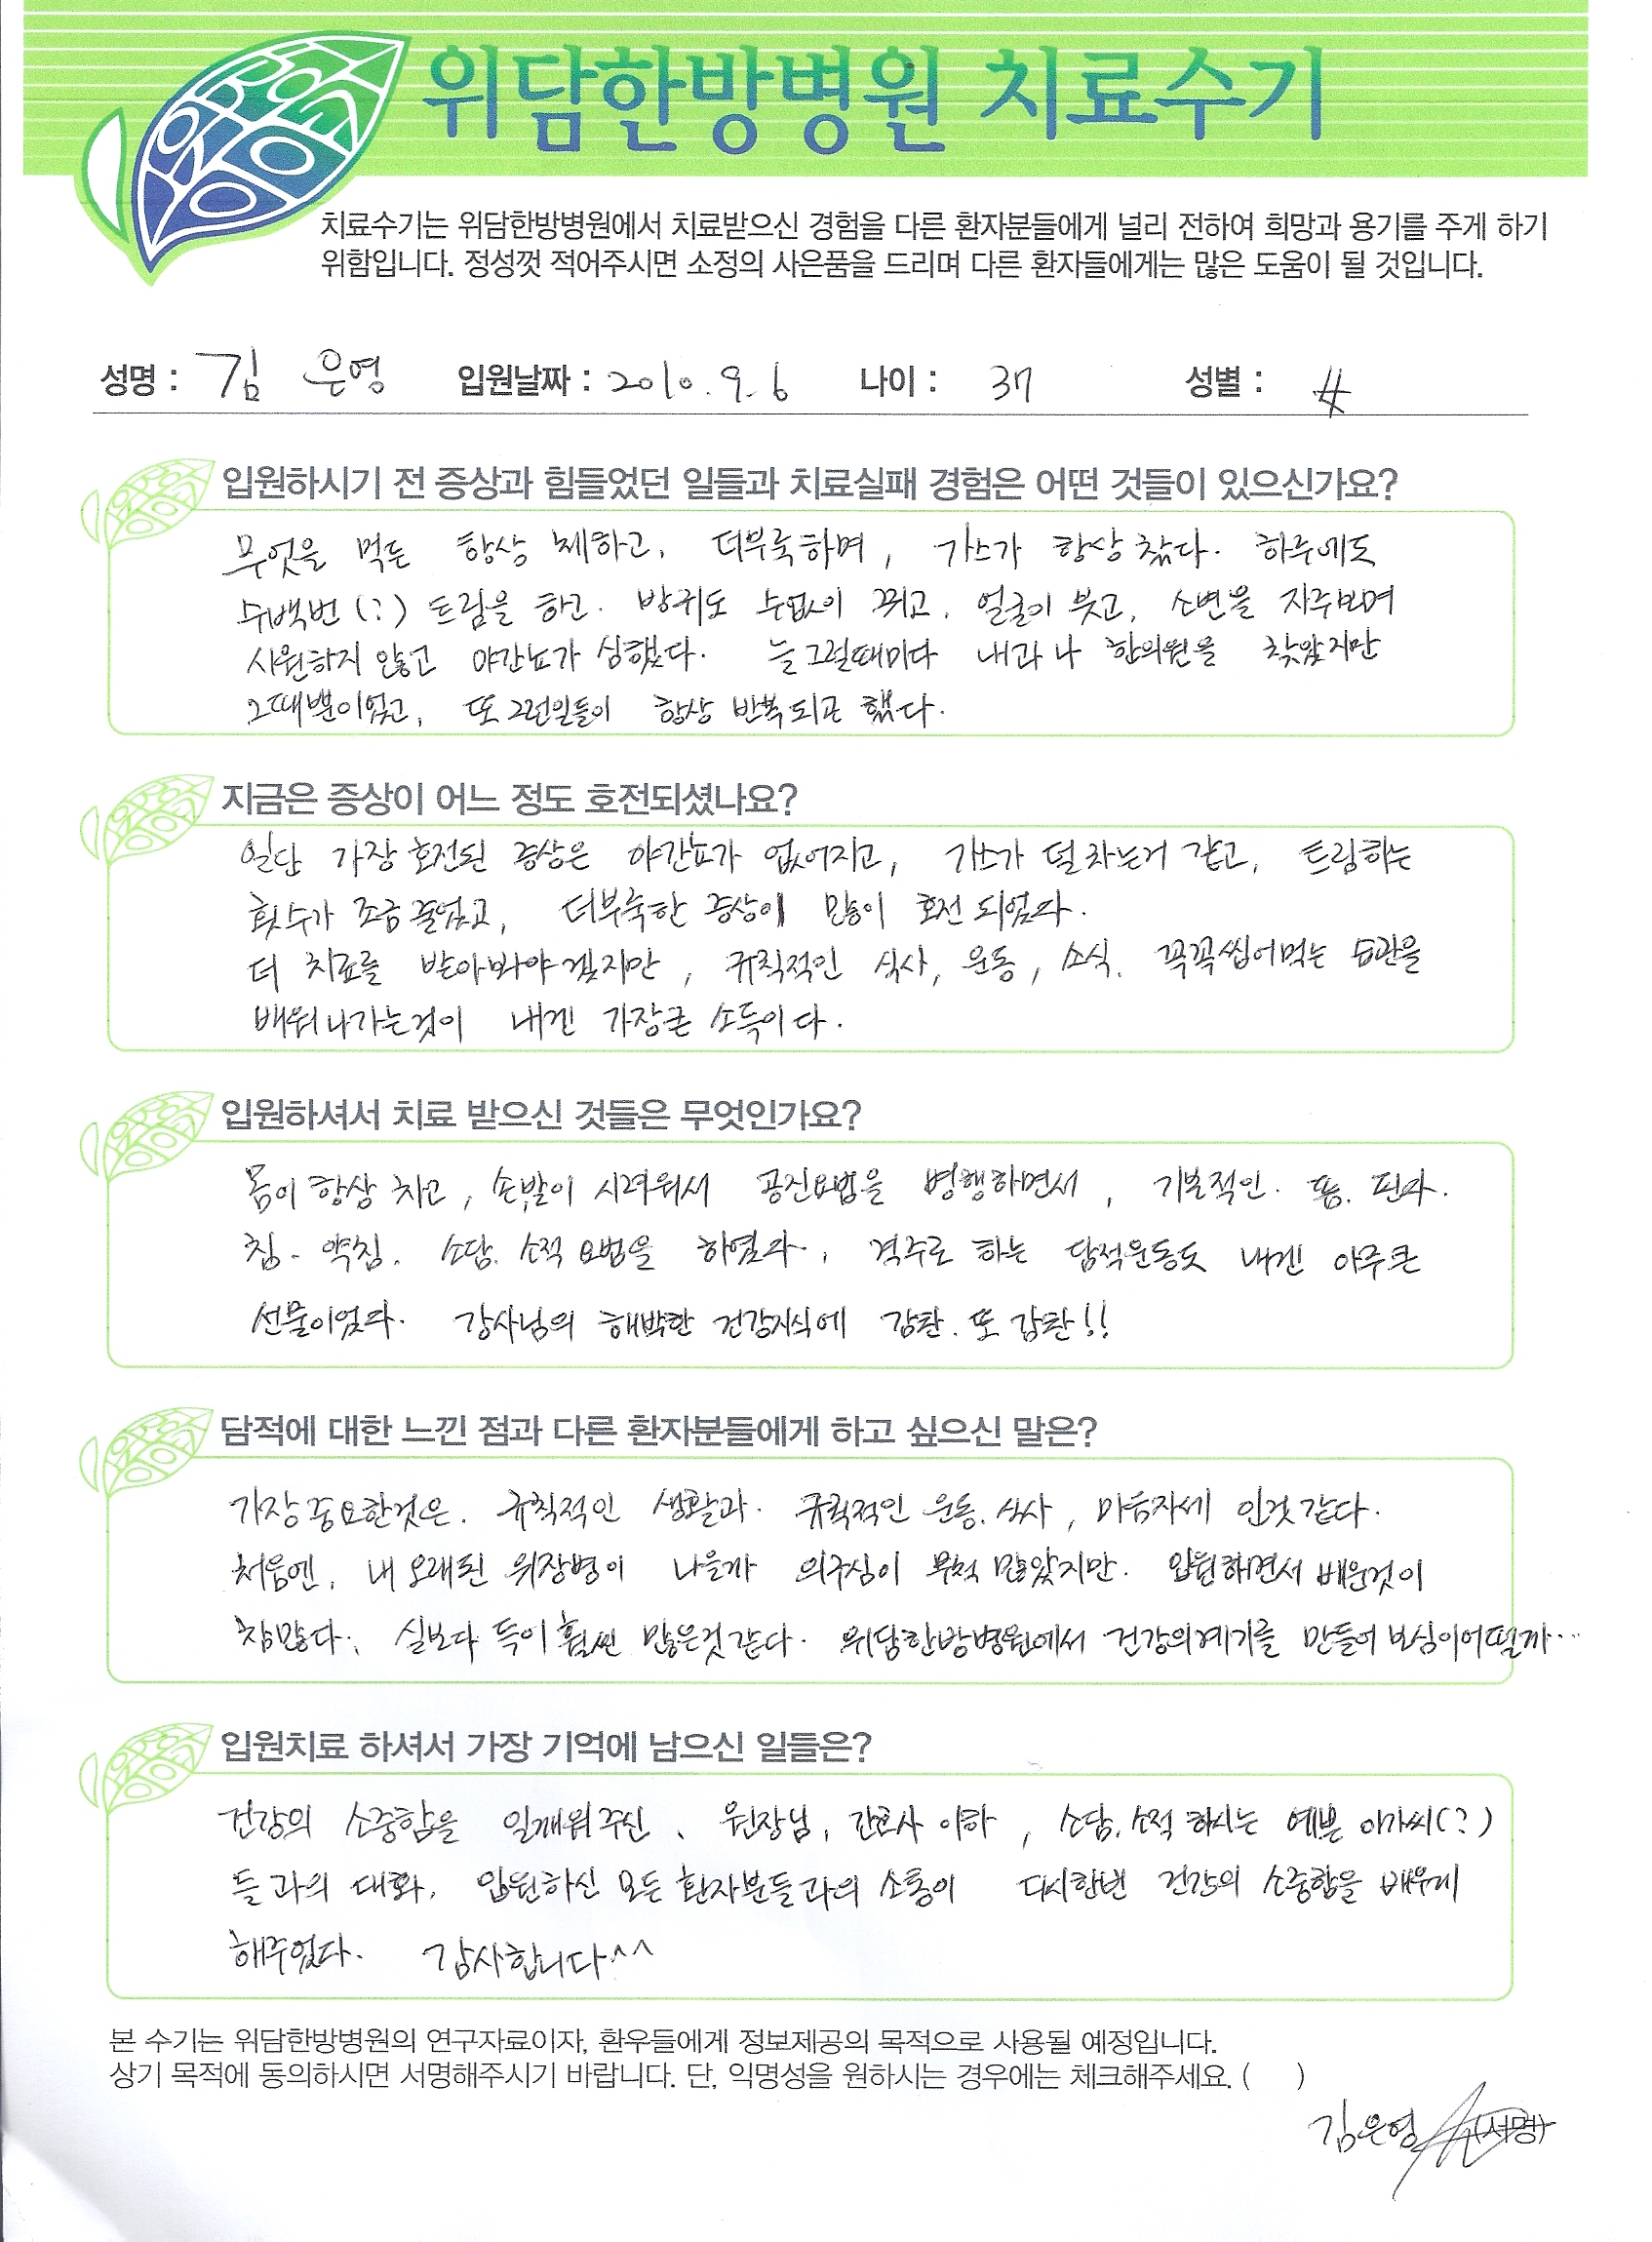 위담한방병원 치료수기
치료수기는 위담한방병원에서 치료받으신 경험을 다른 환자분들에게 널리 전하여 희망과 용기를 주게 하기
위함입니다. 정성껏 적어주시면 소정의 사은품을 드리며 다른 환자들에게는 많은 도움이 될 것입니다.
성명 : 김 은영 입원날짜 : 2010. 9. 6 나이 : 37 성별 : 女
입원하시기 전 증상과 힘들었던 일들과 치료실패 경험은 어떤 것들이 있으신가요?
무엇을 먹든 항상 체하고, 더부룩하며, 가스가 항상 찼다. 하루에도
수백번(?) 트림을 하고. 방귀도 수없이 뀌고, 얼굴이 붓고, 소변을 자주보며
시원하지 않고 야간뇨가 심했다. 늘 그럴때마다 내과나 한의원을 찾았지만
그때뿐이었고, 또 그런일들이 항상 반복되곤 했다.
지금은 증상이 어느 정도 호전되셨나요?
일단 가장 호전된 증상은 야간뇨가 없어지고, 가스가 덜 차는거 같고, 트림하는
횟수가 조금 줄었고, 더부룩한 증상이 많이 호전 되었다.
더 치료를 받아봐야 겠지만, 규칙적인 식사, 운동, 소식, 꼭꼭씹어먹는 습관을
배워나가는것이 내겐 가장큰 소득이다.
입원하셔서 치료 받으신 것들은 무엇인가요?
몸이 항상 차고, 손발이 시려워서 공진요법을 병행하면서, 기본적인. 뜸. 핀다.
침. 약침. 소담. 소적 요법을 하였다. 격주로 하는 담적운동도 내겐 아주큰
선물이었다. 강사님의 해박한 건강지식에 감탄. 또 감탄!!
담적에 대한 느낀 점과 다른 환자분들에게 하고 싶으신 말은?
가장 중요한것은. 규칙적인 생활과. 규칙적인 운동. 식사, 마음자세 인것 같다.
처음엔, 내 오래된 위장병이 나을까 의구심이 무척 많았지만. 입원하면서 배운것이
참많다. 실보다 득이 훨씬 많은것 같다. 위담한방병원에서 건강의계기를 만들어 보심이어떨까...
입원치료 하셔서 가장 기억에 남으신 일들은?
건강의 소중함을 일깨워주신. 원장님, 간호사 이하, 소담. 소적 하시는 예쁜 아가씨(?)
들과의 대화, 입원하신 모든 환자분들과의 소통이 다시한번 건강의 소중함을 배우게
해주었다. 감사합니다^^
본 수기는 위담한방병원의 연구자료이자, 환우들에게 정보제공의 목적으로 사용될 예정입니다.
상기 목적에 동의하시면 서명해주시기 바랍니다. 단, 익명성을 원하시는 경우에는 체크해주세요. ( )
김은영 (서명)